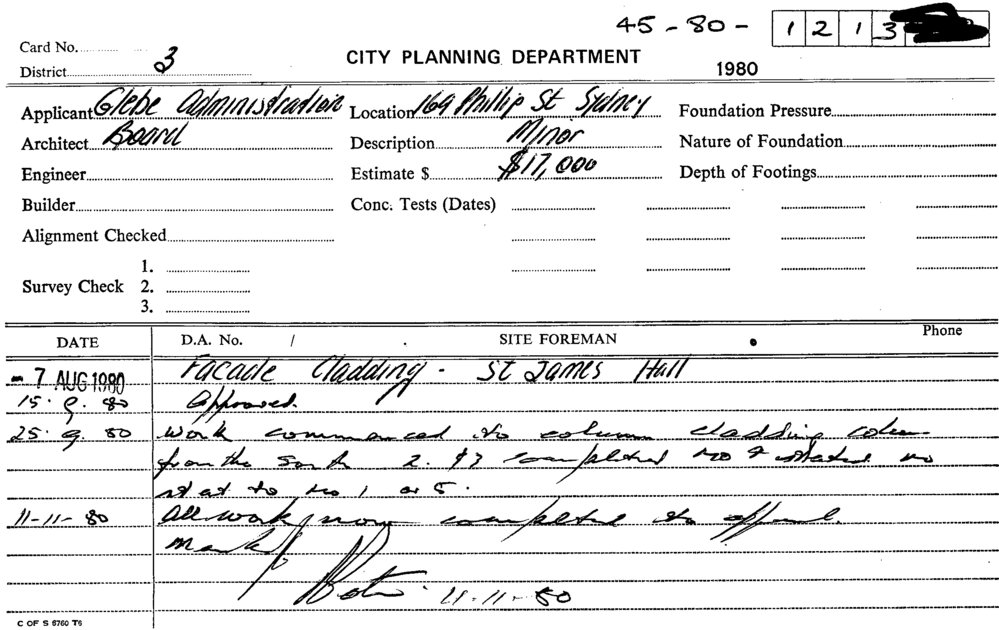 45-80- 1 2 1 3
Card No.
CITY PLANNING DEPARTMENT
District 3
1980
Applicant Glebe Administration Location 169 Phillip St Sydney Foundation Pressure
Architect Board Description Minor Nature of Foundation
Engineer Estimate $ $17,000 Depth of Footings
Builder Conc. Tests (Dates)
Alignment Checked
1.
Survey Check 2.
3.
DATE D.A. No. / . SITE FOREMAN Phone
- 7 AUG 1980 Facade Cladding - St James Hall
15. 9. 80 Approved.
25. 9. 80 Work commenced to column cladding
from the South 2. & 3 completed No 4 started no
start to No 1 or 5.
11-11-80 All work now completed to approval.
Mark
11-11-80
C OF S 6760 T6